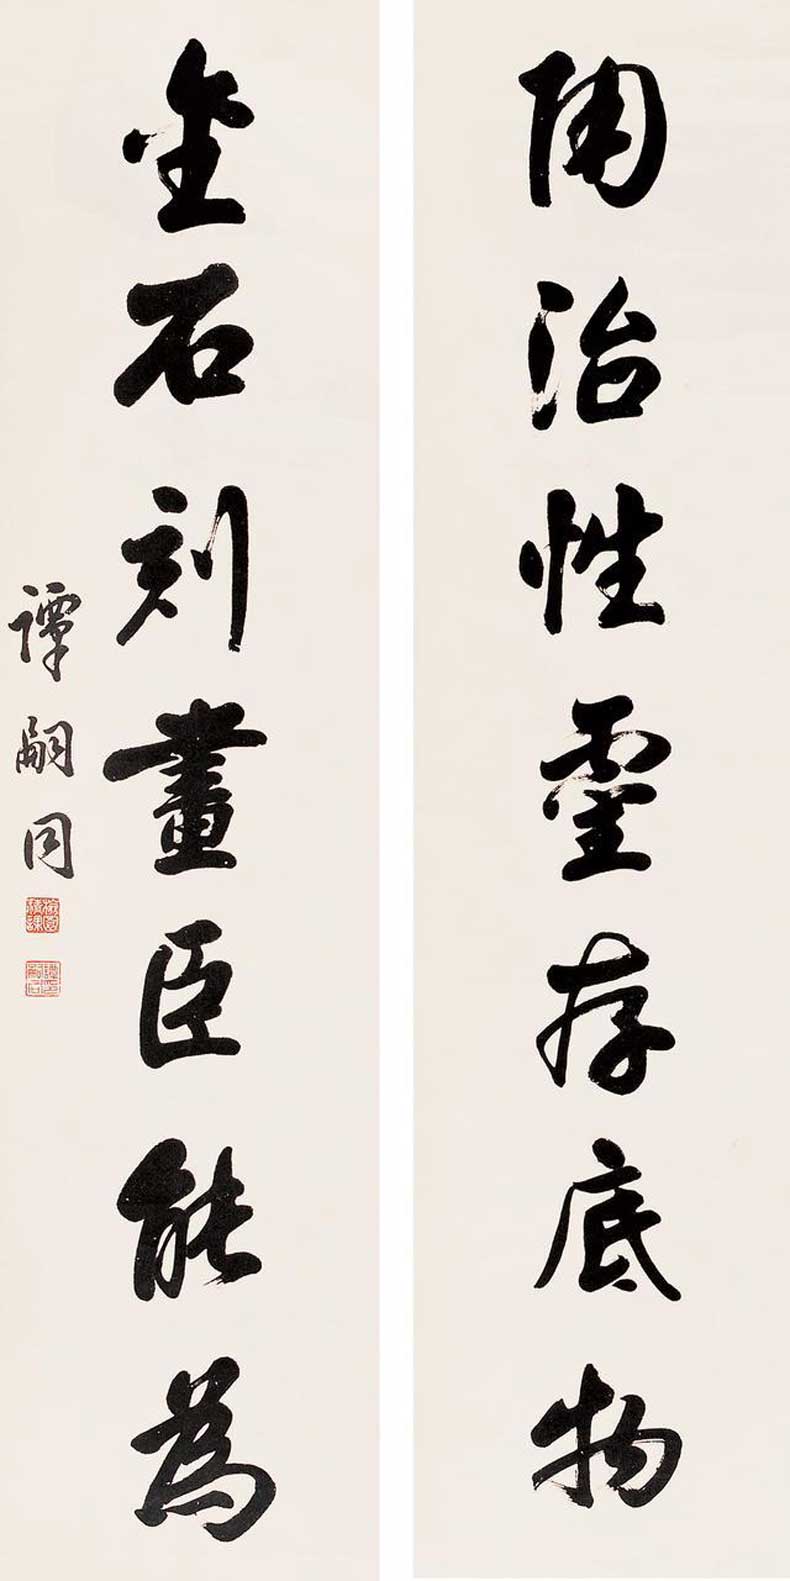 陶冶性靈存底物
金石刻畫臣能為
譚嗣同